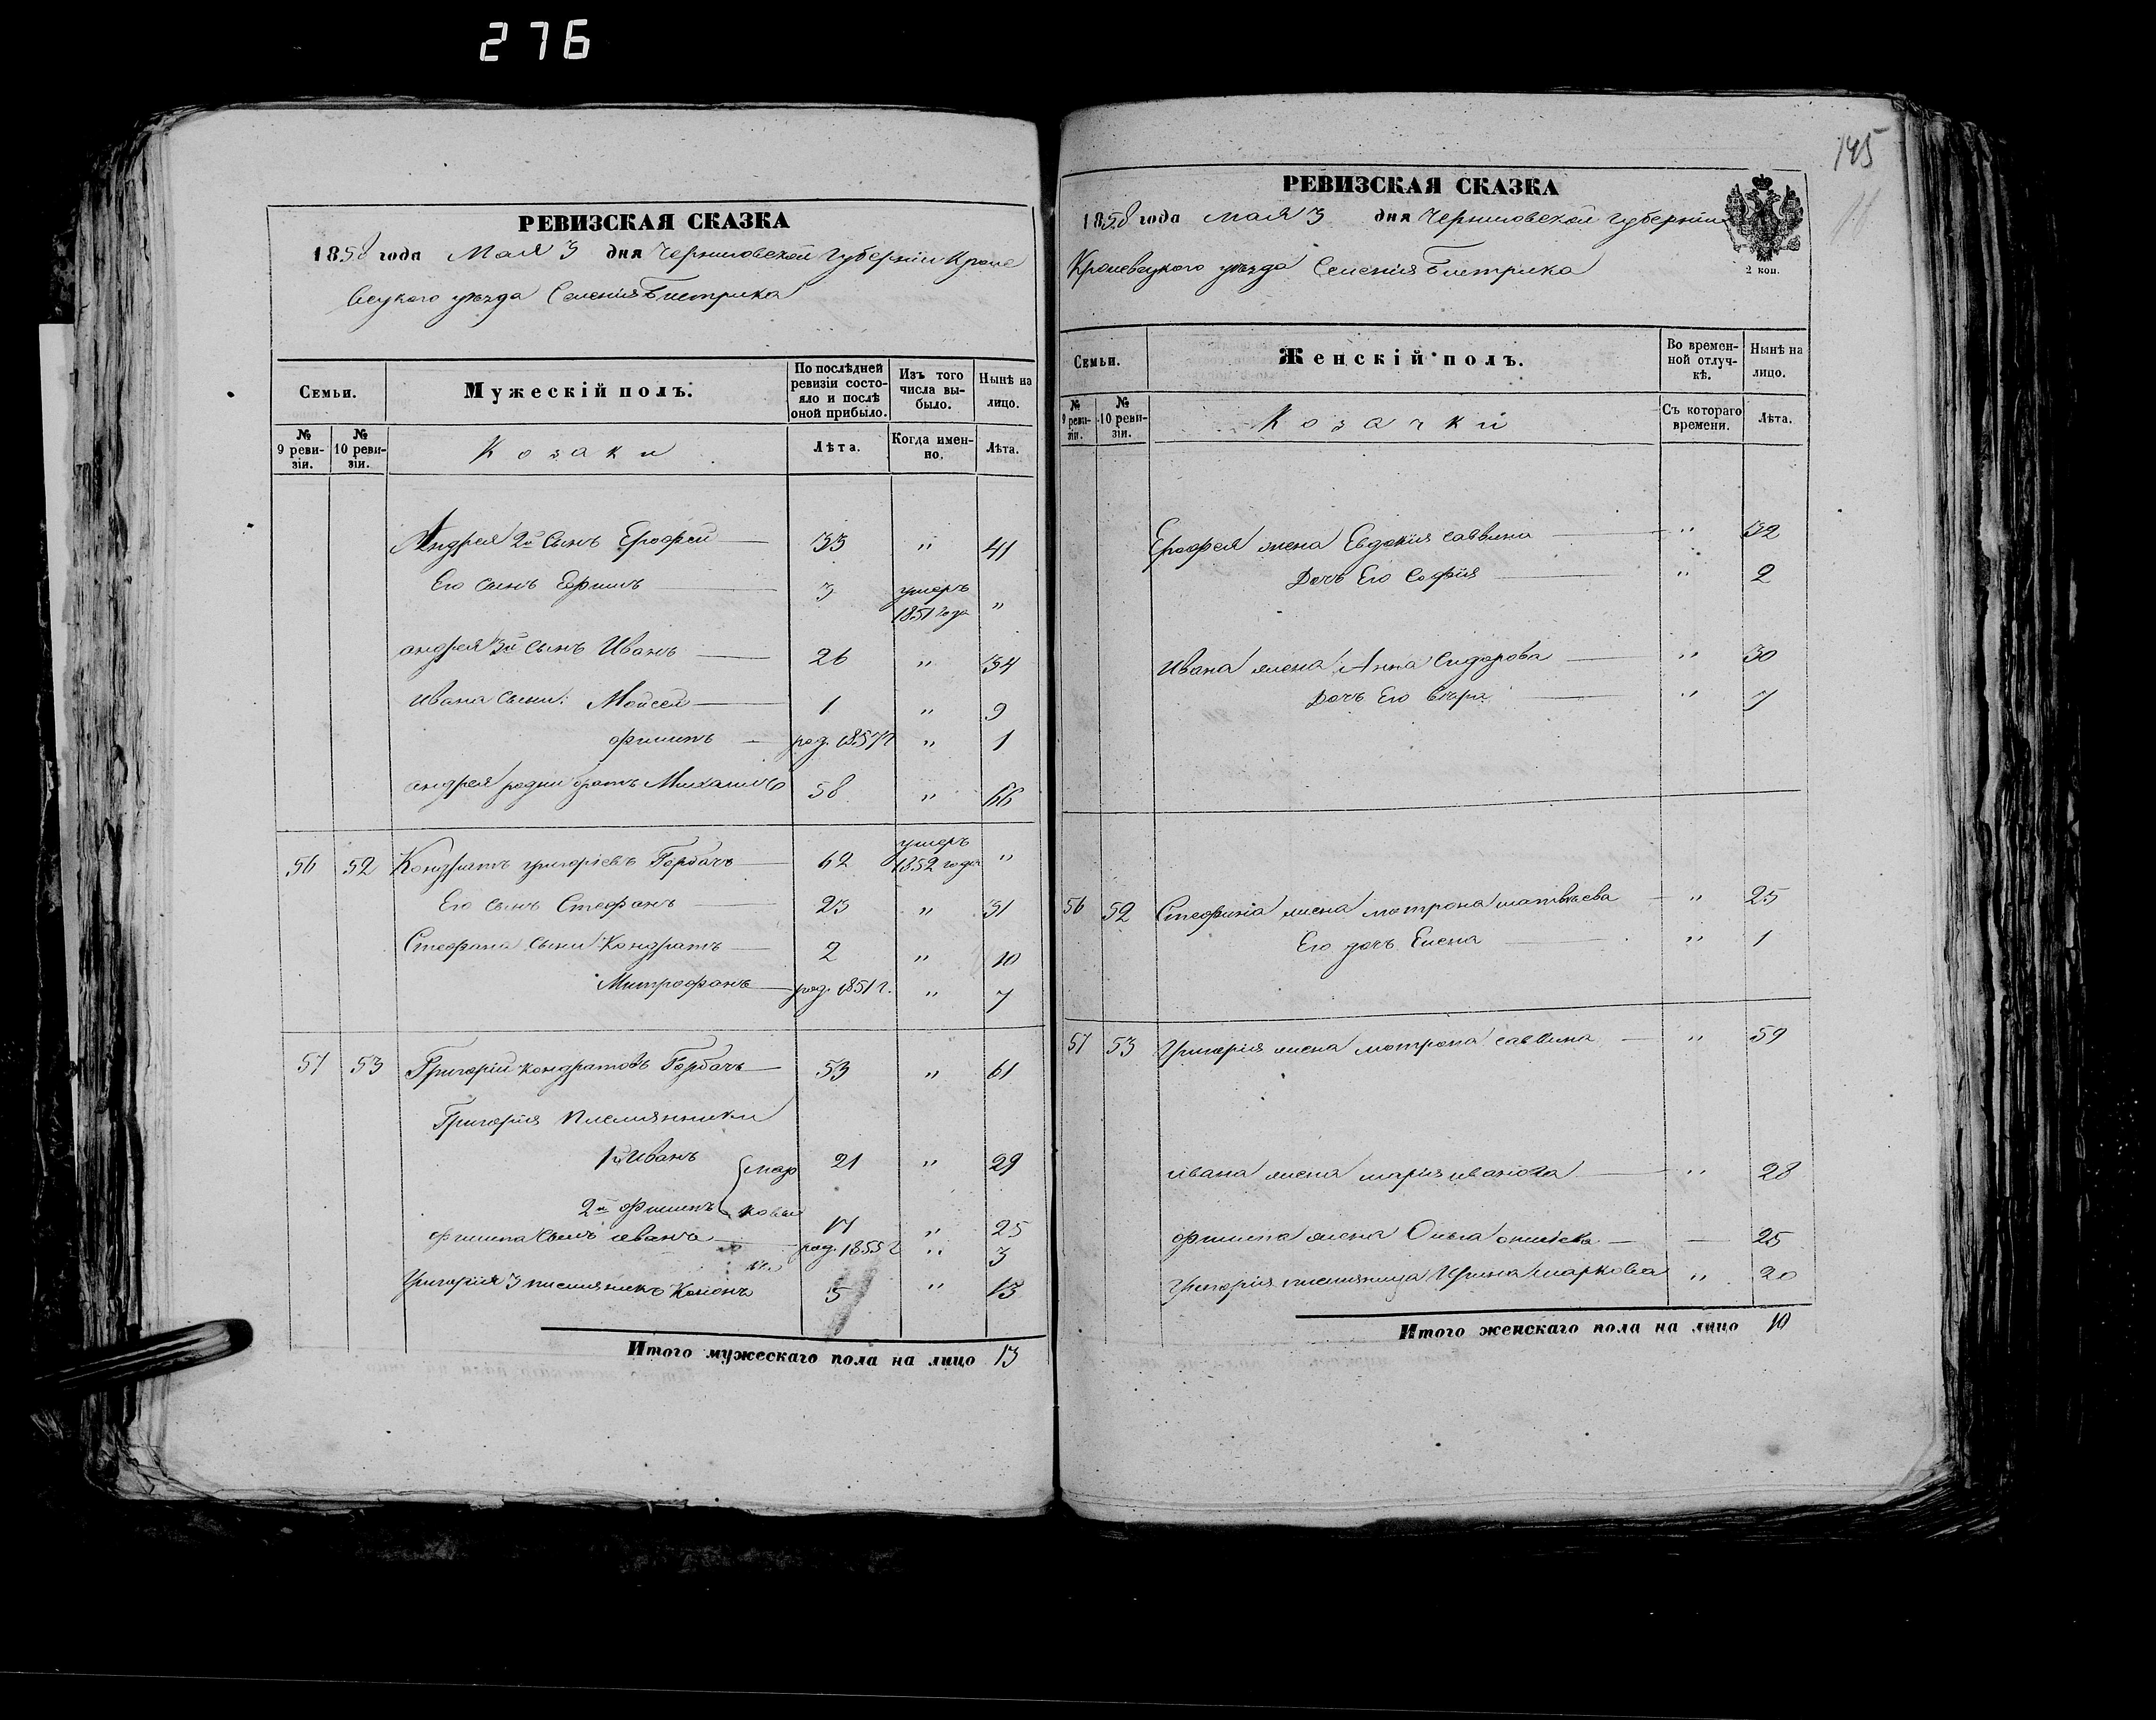 276
145
РЕВИЗСКАЯ СКАЗКА
1858 года Мая 3 дня Черниговской Губернии Кроле
вецкого уезда Селения Бистрика
Семьи.
Мужескій полъ.
По послѣдней ревизіи состояло и послѣ оной прибыло.
Изъ того числа выбыло.
Нынѣ на лицо.
№ 9 ревизіи.
№ 10 ревизіи.
Козаки
Лѣта.
Когда именно.
Лѣта.
Андрея 2й сынъ Ерофей 33 " 41
Его сынъ Ефимъ 3 умеръ 1851 года "
андрея 3й сынъ Иванъ 26 " 34
Ивана сыни: Мойсей 1 " 9
филипъ род. 1857 г " 1
андрея родни братъ Михаилъ 58 " 66
56 52 Кондратъ григоріевъ Горбачъ 62 умеръ 1852 года "
Его сынъ Стефанъ 23 " 31
Стефана сыни Кондратъ 2 " 10
Митрофанъ род. 1851 г. " 7
57 53 Григорій кондратовъ Горбачъ 53 " 61
Григорія племянники
1й Иванъ 21 " 29
мар
2й филипъ ковы 17 " 25
филипа сынъ иванъ род. 1855 г " 3
Григорія 3 племяникъ Кононъ 5 " 13
Итого мужескаго пола на лицо 13
РЕВИЗСКАЯ СКАЗКА
1858 года мая 3 дня Черниговской Губернии
Кролевецкого уезда Селения Бистрика
2 коп.
Семьи.
Женскій полъ.
Во временной отлучкѣ.
Нынѣ на лицо.
№ 9 ревизіи.
№ 10 ревизіи.
Козачки
Съ котораго времени.
Лѣта.
Ерофея жена Евдокия саввина " 32
Дочь Его София " 2
Ивана жена Анна Сидорова " 30
Дочъ Его Вѣра " 7
56 52 Стефана жена мотрона матвѣева " 25
Его дочъ Елена " 1
57 53 Григория жена мотрона саввина " 59
ивана жена мария иванова " 28
филипа жена Ольга 25
Григория племяница Ирина маркова " 20
Итого женскаго пола на лицо 10